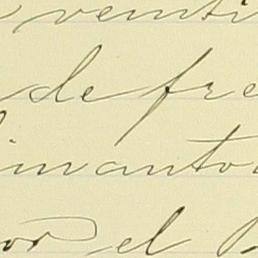 veinti
de fre
imanto
or el